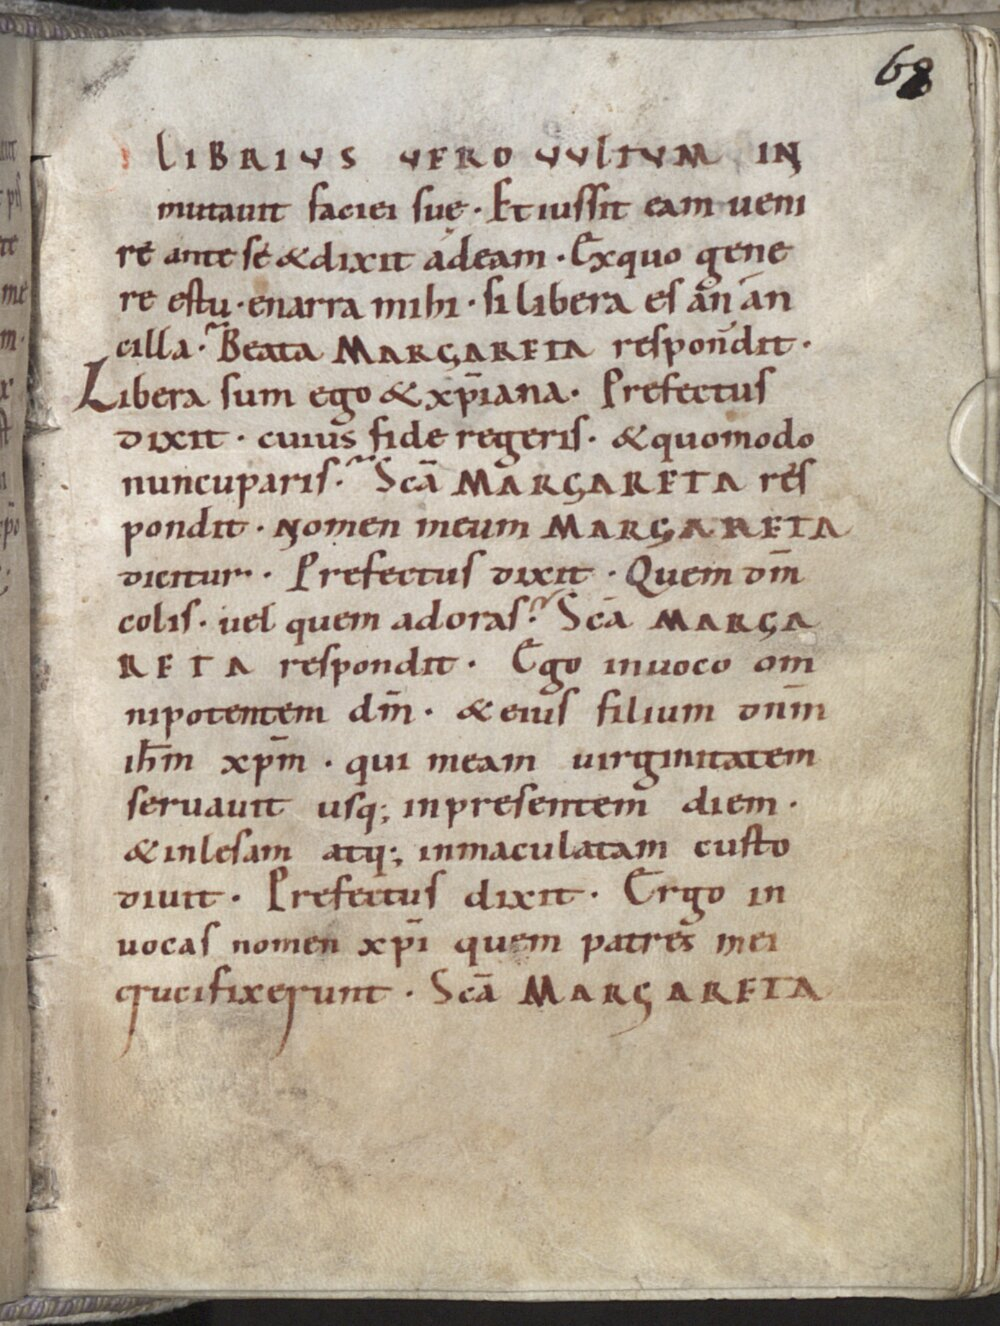 68
LIBRIUS VERO VULTUM IN
mutauit faciei suę · Et iussit eam ueni
re ante se & dixit ad eam · Ex quo gene
re es tu · enarra mihi · si libera es an an
cilla · Beata MARGARETA respondit ·
Libera sum ego & xp̄iana · Prefectus
dixit · cuius fide regeris · & quomodo
nuncuparis · Scā MARGARETA res
pondit · Nomen meum MARGARETA
dicitur · Prefectus dixit · Quem dm̄
colis · uel quem adoras · Scā MARGA
RETA respondit · Ego inuoco om
nipotentem dm̄ · & eius filium dnm̄
ihm̄ xpm̄ · qui meam uirginitatem
seruauit usq; in presentem diem ·
& inlesam atq; inmaculatam custo
diuit · Prefectus dixit · Ergo in
uocas nomen xp̄i quem patres mei
crucifixerunt · Scā MARGARETA